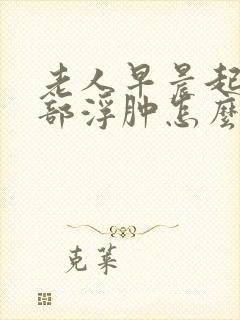 老人早晨起
部浮肿怎麼
克莱